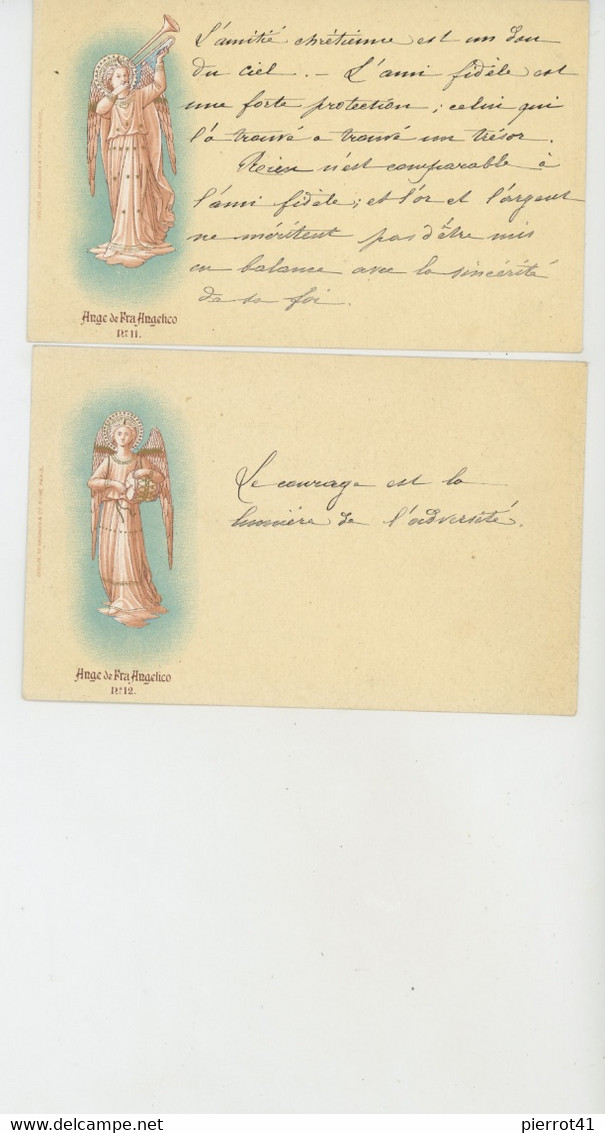 L'amitié chrétienne est un don
du ciel. – L'ami fidèle est
une forte protection ; celui qui
l'a trouvé a trouvé un trésor.
Rien n'est comparable à
l'ami fidèle ; et l'or et l'argent
ne méritent pas d'être mis
en balance avec la sincérité
de sa foi.
Ange de Fra Angelico
No 11.
Le courage est la
lumière de l'adversité.
Ange de Fra Angelico
No 12.
pierrot41